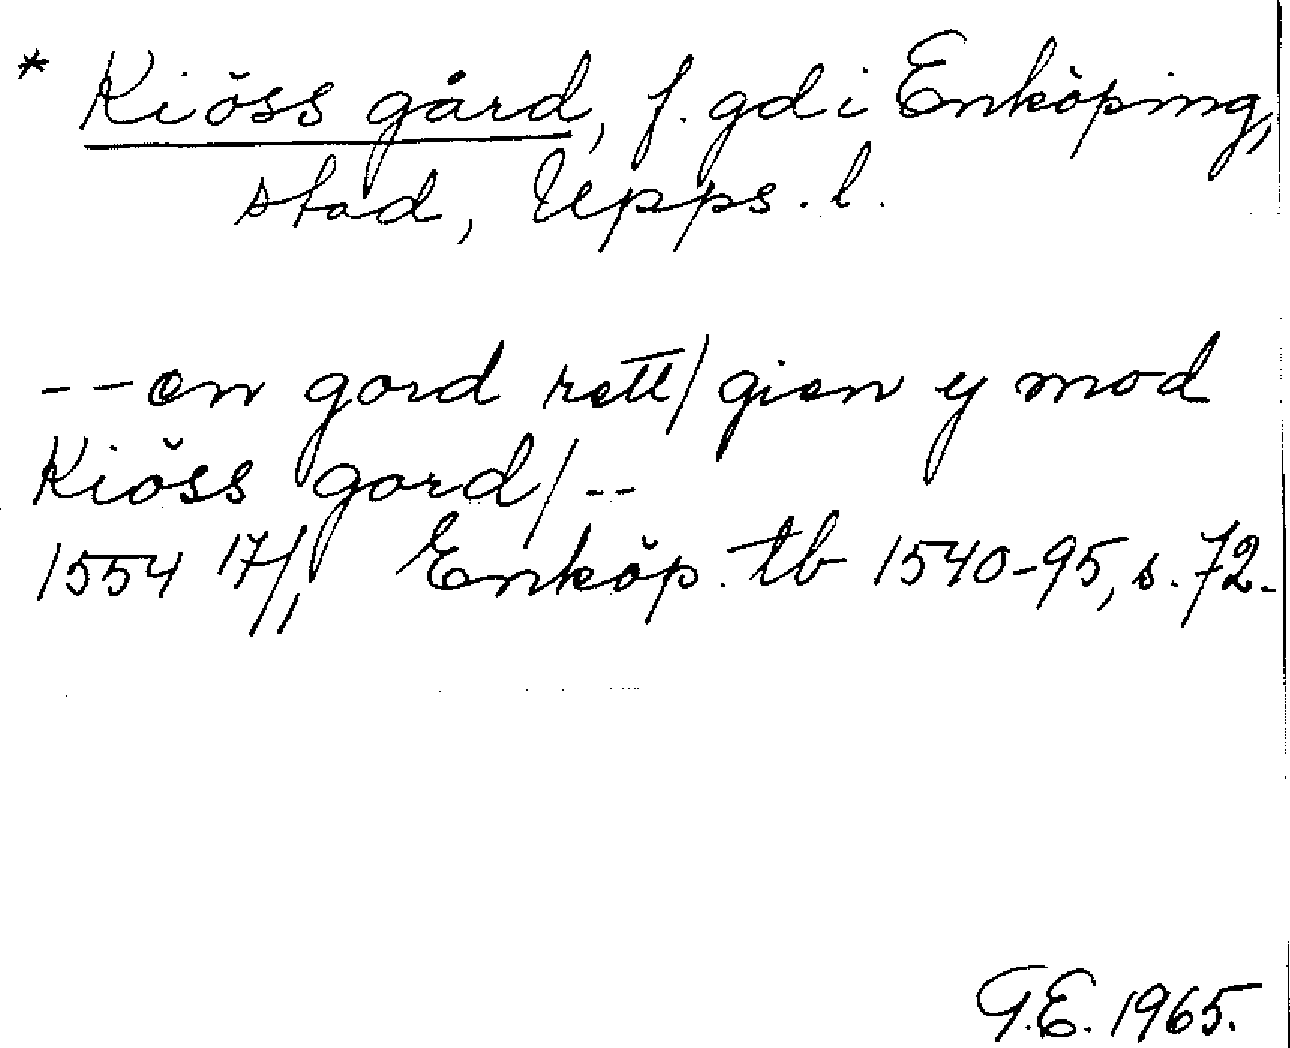 * Kiöss gård, f. gd i Enköping,
stad, Upps. l.
-- en gord rett/ gien y mod
Kiöss gord/ --
1554 17/1, Enköp. tb 1540-95, s. 72.
G.E. 1965.